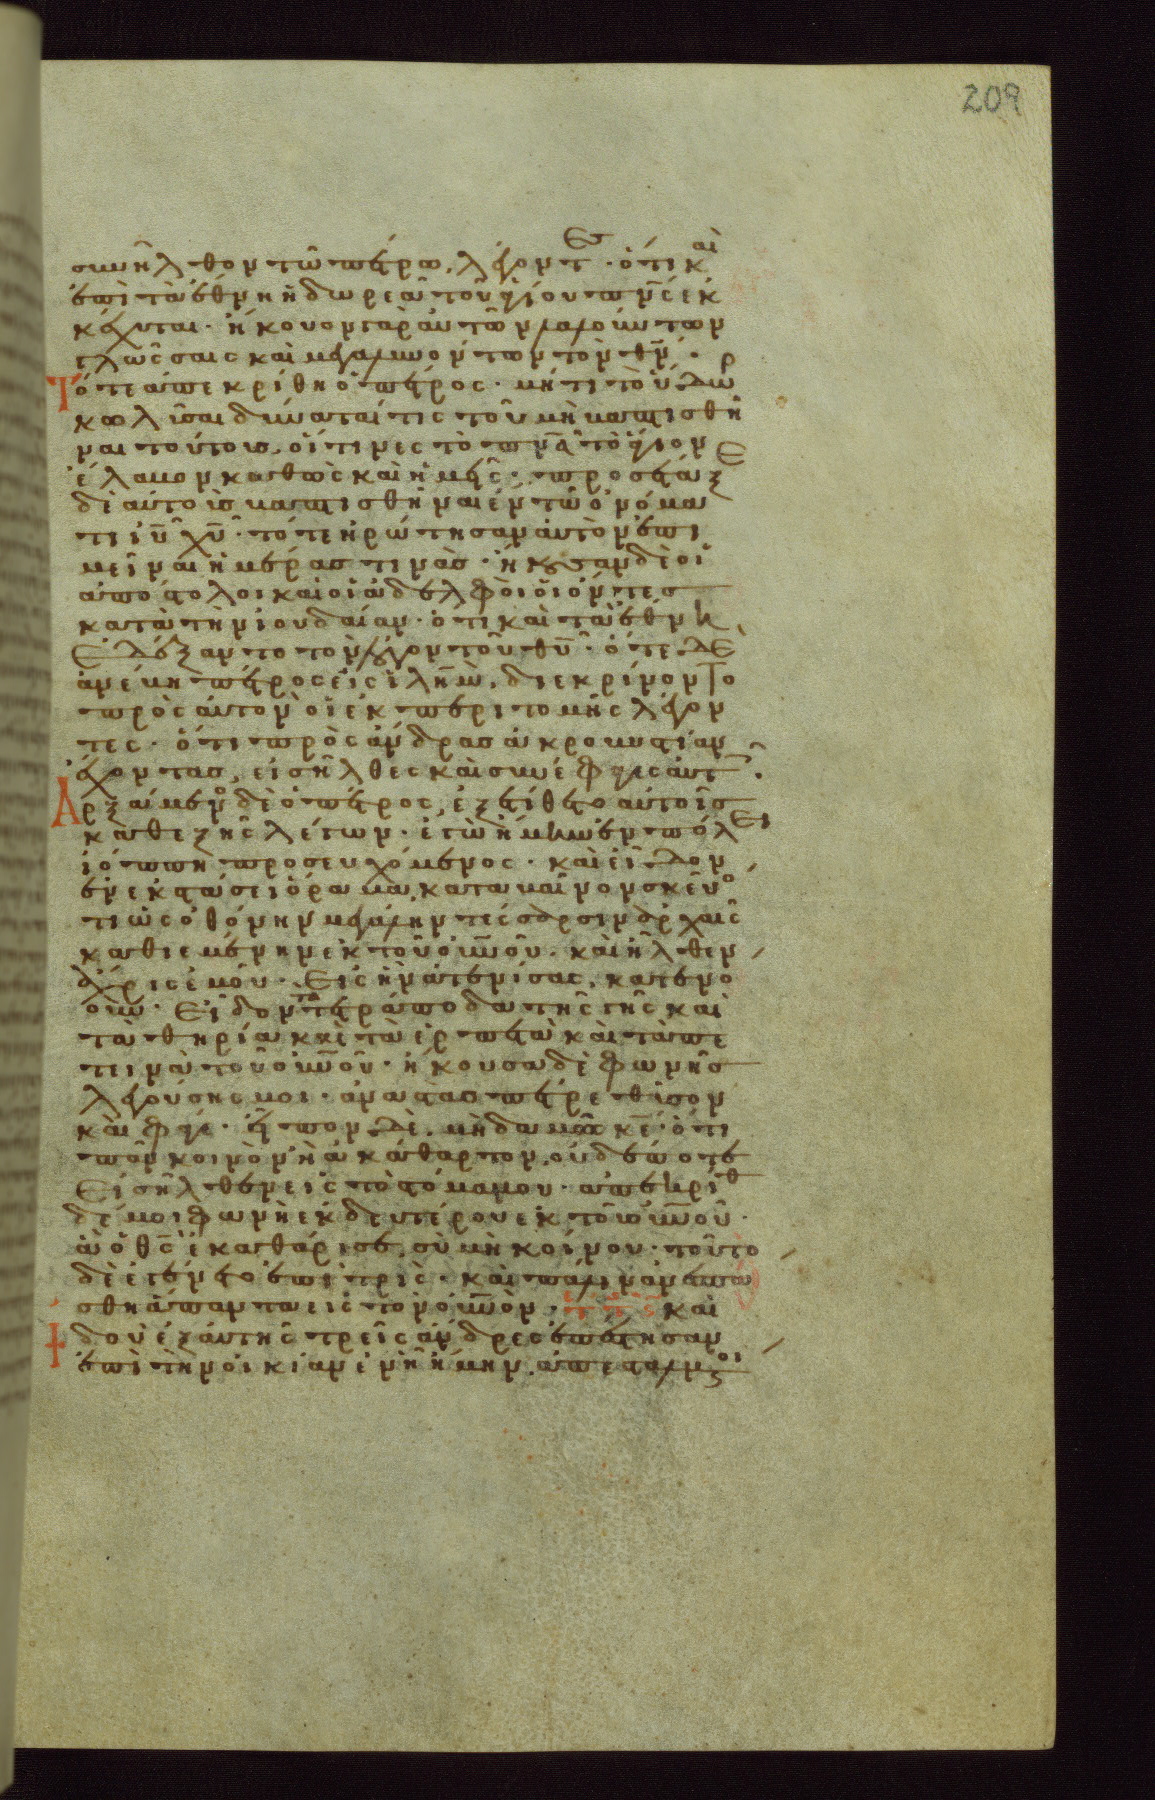 209
συνῆλθον τῶ πέτρω, λέγοντες · ὅτι καὶ
ἐπὶ τὰ ἔθνη ἡ δωρεὰ τοῦ ἁγίου πν̅ς ἐκ
κέχυται · ἤκουον γὰρ αὐτῶν λαλούντων
γλώσσαις καὶ μεγαλυνόντων τὸν θν̅ ·
Τότε ἀπεκρίθη ὁ πέτρος · μήτι τὸ ὕδωρ
κωλῦσαι δύναταί τις τοῦ μὴ βαπτισθῆ
ναι τούτους, οἵτινες τὸ πν̅α τὸ ἅγιον
ἔλαβον καθὼς καὶ ἡμεῖς · προσέταξε
δὲ αὐτοὺς βαπτισθῆναι ἐν τῶ ὀνόμα
τι ἰυ̅ χυ̅ · τότε ἠρώτησαν αὐτὸν ἐπι
μεῖναι ἡμέρας τινάς · ἤκουσαν δὲ οἱ
ἀπόστολοι καὶ οἱ ἀδελφοὶ οἱ ὄντες
κατὰ τὴν ἰουδαίαν · ὅτι καὶ τὰ ἔθνη
ἐδέξαντο τὸν λόγον τοῦ θυ̅ · ὅτε δὲ
ἀνέβη πέτρος εἰς ἰλη̅μ, διεκρίνοντο
πρὸς αὐτὸν οἱ ἐκ περιτομῆς λέγον
τες · ὅτι πρὸς ἄνδρας ἀκροβυστίαν
ἔχοντας, εἰσῆλθες καὶ συνέφαγες αὐτοῖς ·
Ἀρξάμενος δὲ ὁ πέτρος, ἐξετίθετο αὐτοῖς
καθεξῆς λέγων · ἐγὼ ἤμην ἐν πόλει
ἰόππη προσευχόμενος · καὶ εἶδον
ἐν ἐκστάσει ὅραμα, καταβαῖνον σκεῦος
τι ὡς ὀθόνην μεγάλην τέσσαρσιν ἀρχαῖς
καθιεμένην ἐκ τοῦ οὐν̅οῦ · καὶ ἦλθεν
ἄχρις ἐμοῦ · εἰς ἣν ἀτενίσας, κατενό
ουν · εἶδον τὰ τετράποδα τῆς γῆς καὶ
τὰ θηρία καὶ τὰ ἑρπετὰ καὶ τὰ πε
τεινὰ τοῦ οὐν̅οῦ · ἤκουσα δὲ φωνῆς
λεγούσης μοι · ἀναστὰς πέτρε θῦσον
καὶ φάγε · εἶπον δὲ, μηδαμῶς κε̅ · ὅτι
πᾶν κοινὸν ἢ ἀκάθαρτον, οὐδέποτε
εἰσῆλθεν εἰς τὸ στόμα μου · ἀπεκρίθη
δέ μοι φωνὴ ἐκ δευτέρου ἐκ τοῦ οὐν̅οῦ ·
ἃ ὁ θς̅ ἐκαθάρισε, σὺ μὴ κοίνου · τοῦτο
δὲ ἐγένετο ἐπὶ τρὶς · καὶ πάλιν ἀνεσπά
σθη ἅπαντα εἰς τὸν οὐν̅όν · καὶ
ἰδοὺ ἐξαυτῆς τρεῖς ἄνδρες ἐπέστησαν
ἐπὶ τὴν οἰκίαν ἐν ἧ ἤμην, ἀπεσταλμένοι